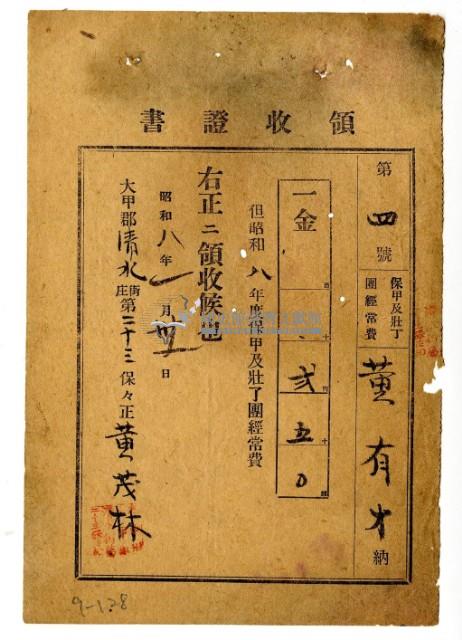 領收證書
第四號
保甲及壯丁
團經常費
董有才納
一金 貳五0
但昭和八年度保甲及壯丁團經常費
右正ニ領收候也
昭和八年一月 日
大甲郡清水街庄第二十三保々正黄茂林
9-138